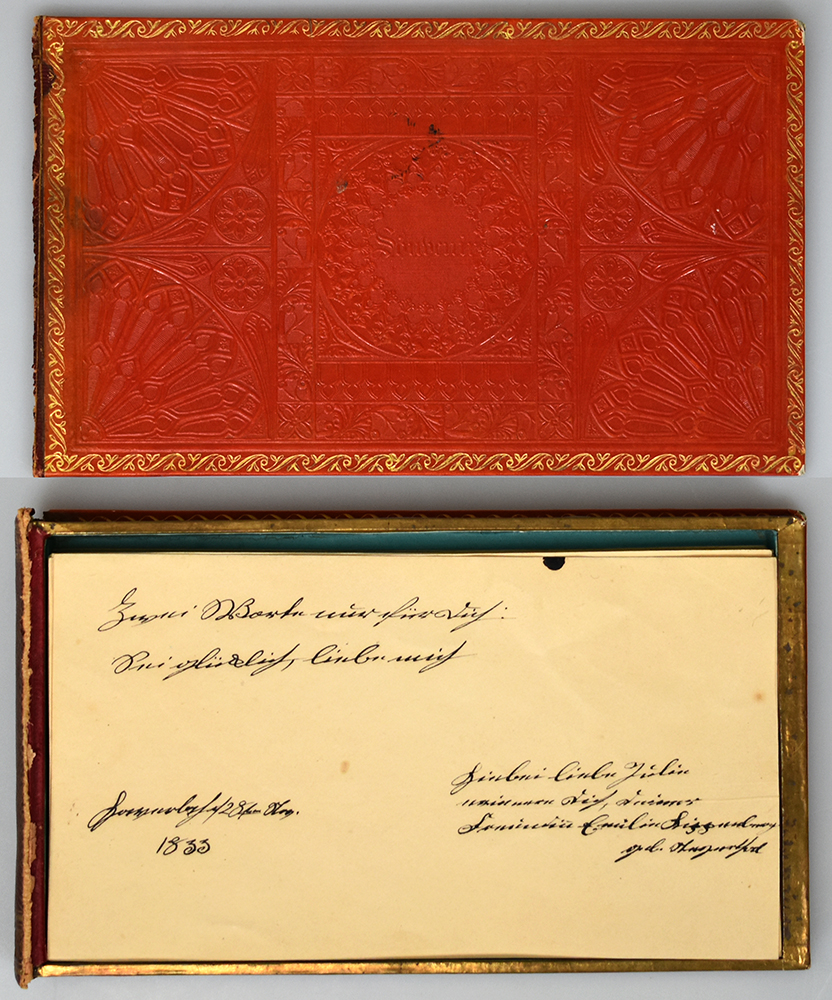 Souvenir
Zwei Worte nur für Dich:
Sei glücklich, liebe mich
28ten Nov.
1833
Hiebei liebe Julie
erinnere Dich, Deiner
Freundin Emilie
geb.